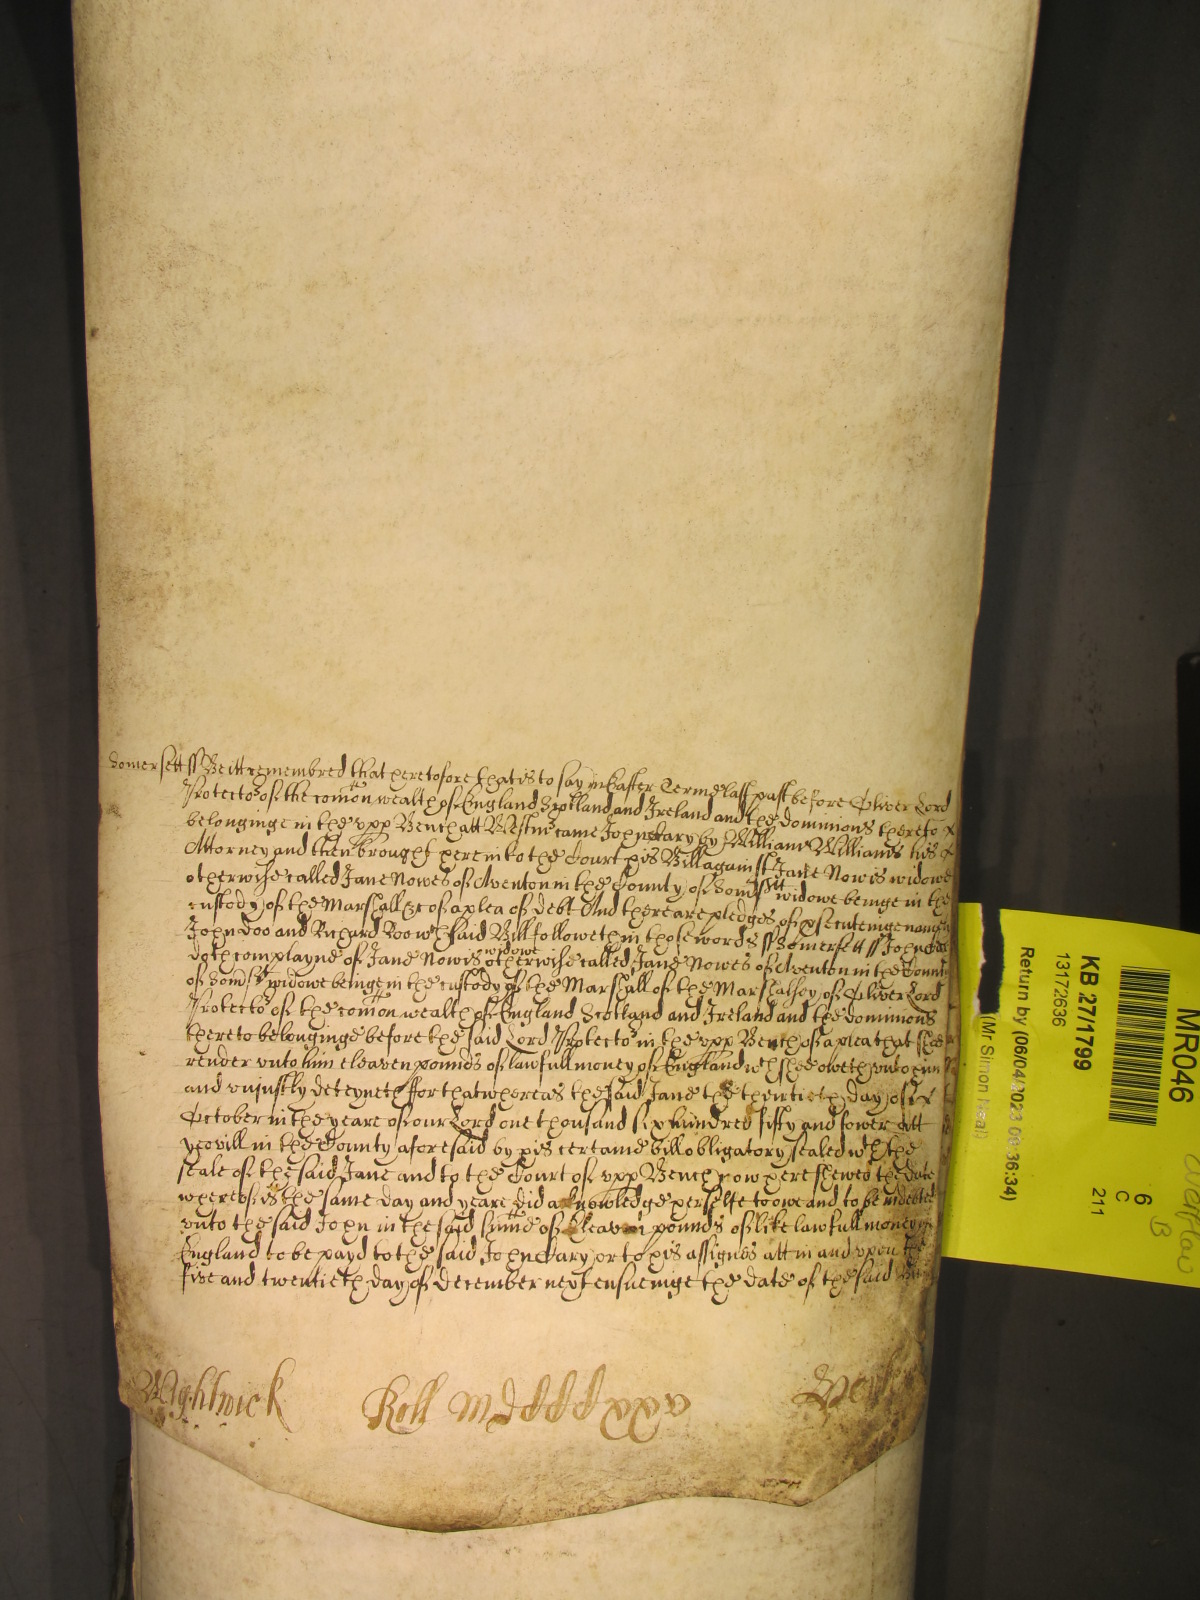 Somersett ss Be itt remembred that heretofore that is to say in Easter Terme last past before Oliver Lord
Protector of the comon wealth of England Scotland and Ireland and the dominions thereto
belonginge in the upp Bench att Westmr came John by William Williams his
Attorney and then brought here into the Court his Bill against Jane Nowis widowe
otherwise called Jane Nowes of Aventon in the County of Somsett widowe beinge in the
custody of the Marshall &c of a plea of debt And there are pledges of psecuteinge namely
John Doo and Richard Roo wch said Bill followeth in these words ss Somersett ss John
doth complayne of Jane Nowis widowe otherwise called Jane Nowes of Aventon in the County
of Somst widowe beinge in the custody of the Marshall of the Marshalsey of Oliver Lord
Protector of the comon wealth of England Scotland and Ireland and the dominions
thereto belonginge before the said Lord Protector in the upp Bench of a plea that shee
render unto him eleaven pounds of lawfull money of England wch shee oweth unto him
and uniustly deteyneth ffor that whereas the said Jane the thirtieth day of
October in the yeare of our Lord one thousand six hundred fifty and fower att
Yeovill in the County aforesaid by his certaine bill obligatory sealed wth the
seale of the said Jane and to the Court of upp Bench now here shewed the date
whereof is the same day and yeare did acknowledge herselfe to owe and to be indebted
unto the said John in the said summe of Eleaven pounds of like lawfull money of
England to be payd to the said John or to his assignes att in and upon the
five and twentieth day of December next ensueinge the date of the said
Wightwick Roll MDCCCxxv
MR046
6
C
211
KB 27/1799
13172636
Return by (06/04/2023 08:36:34)
(Mr Simon Neal)
overflow
B